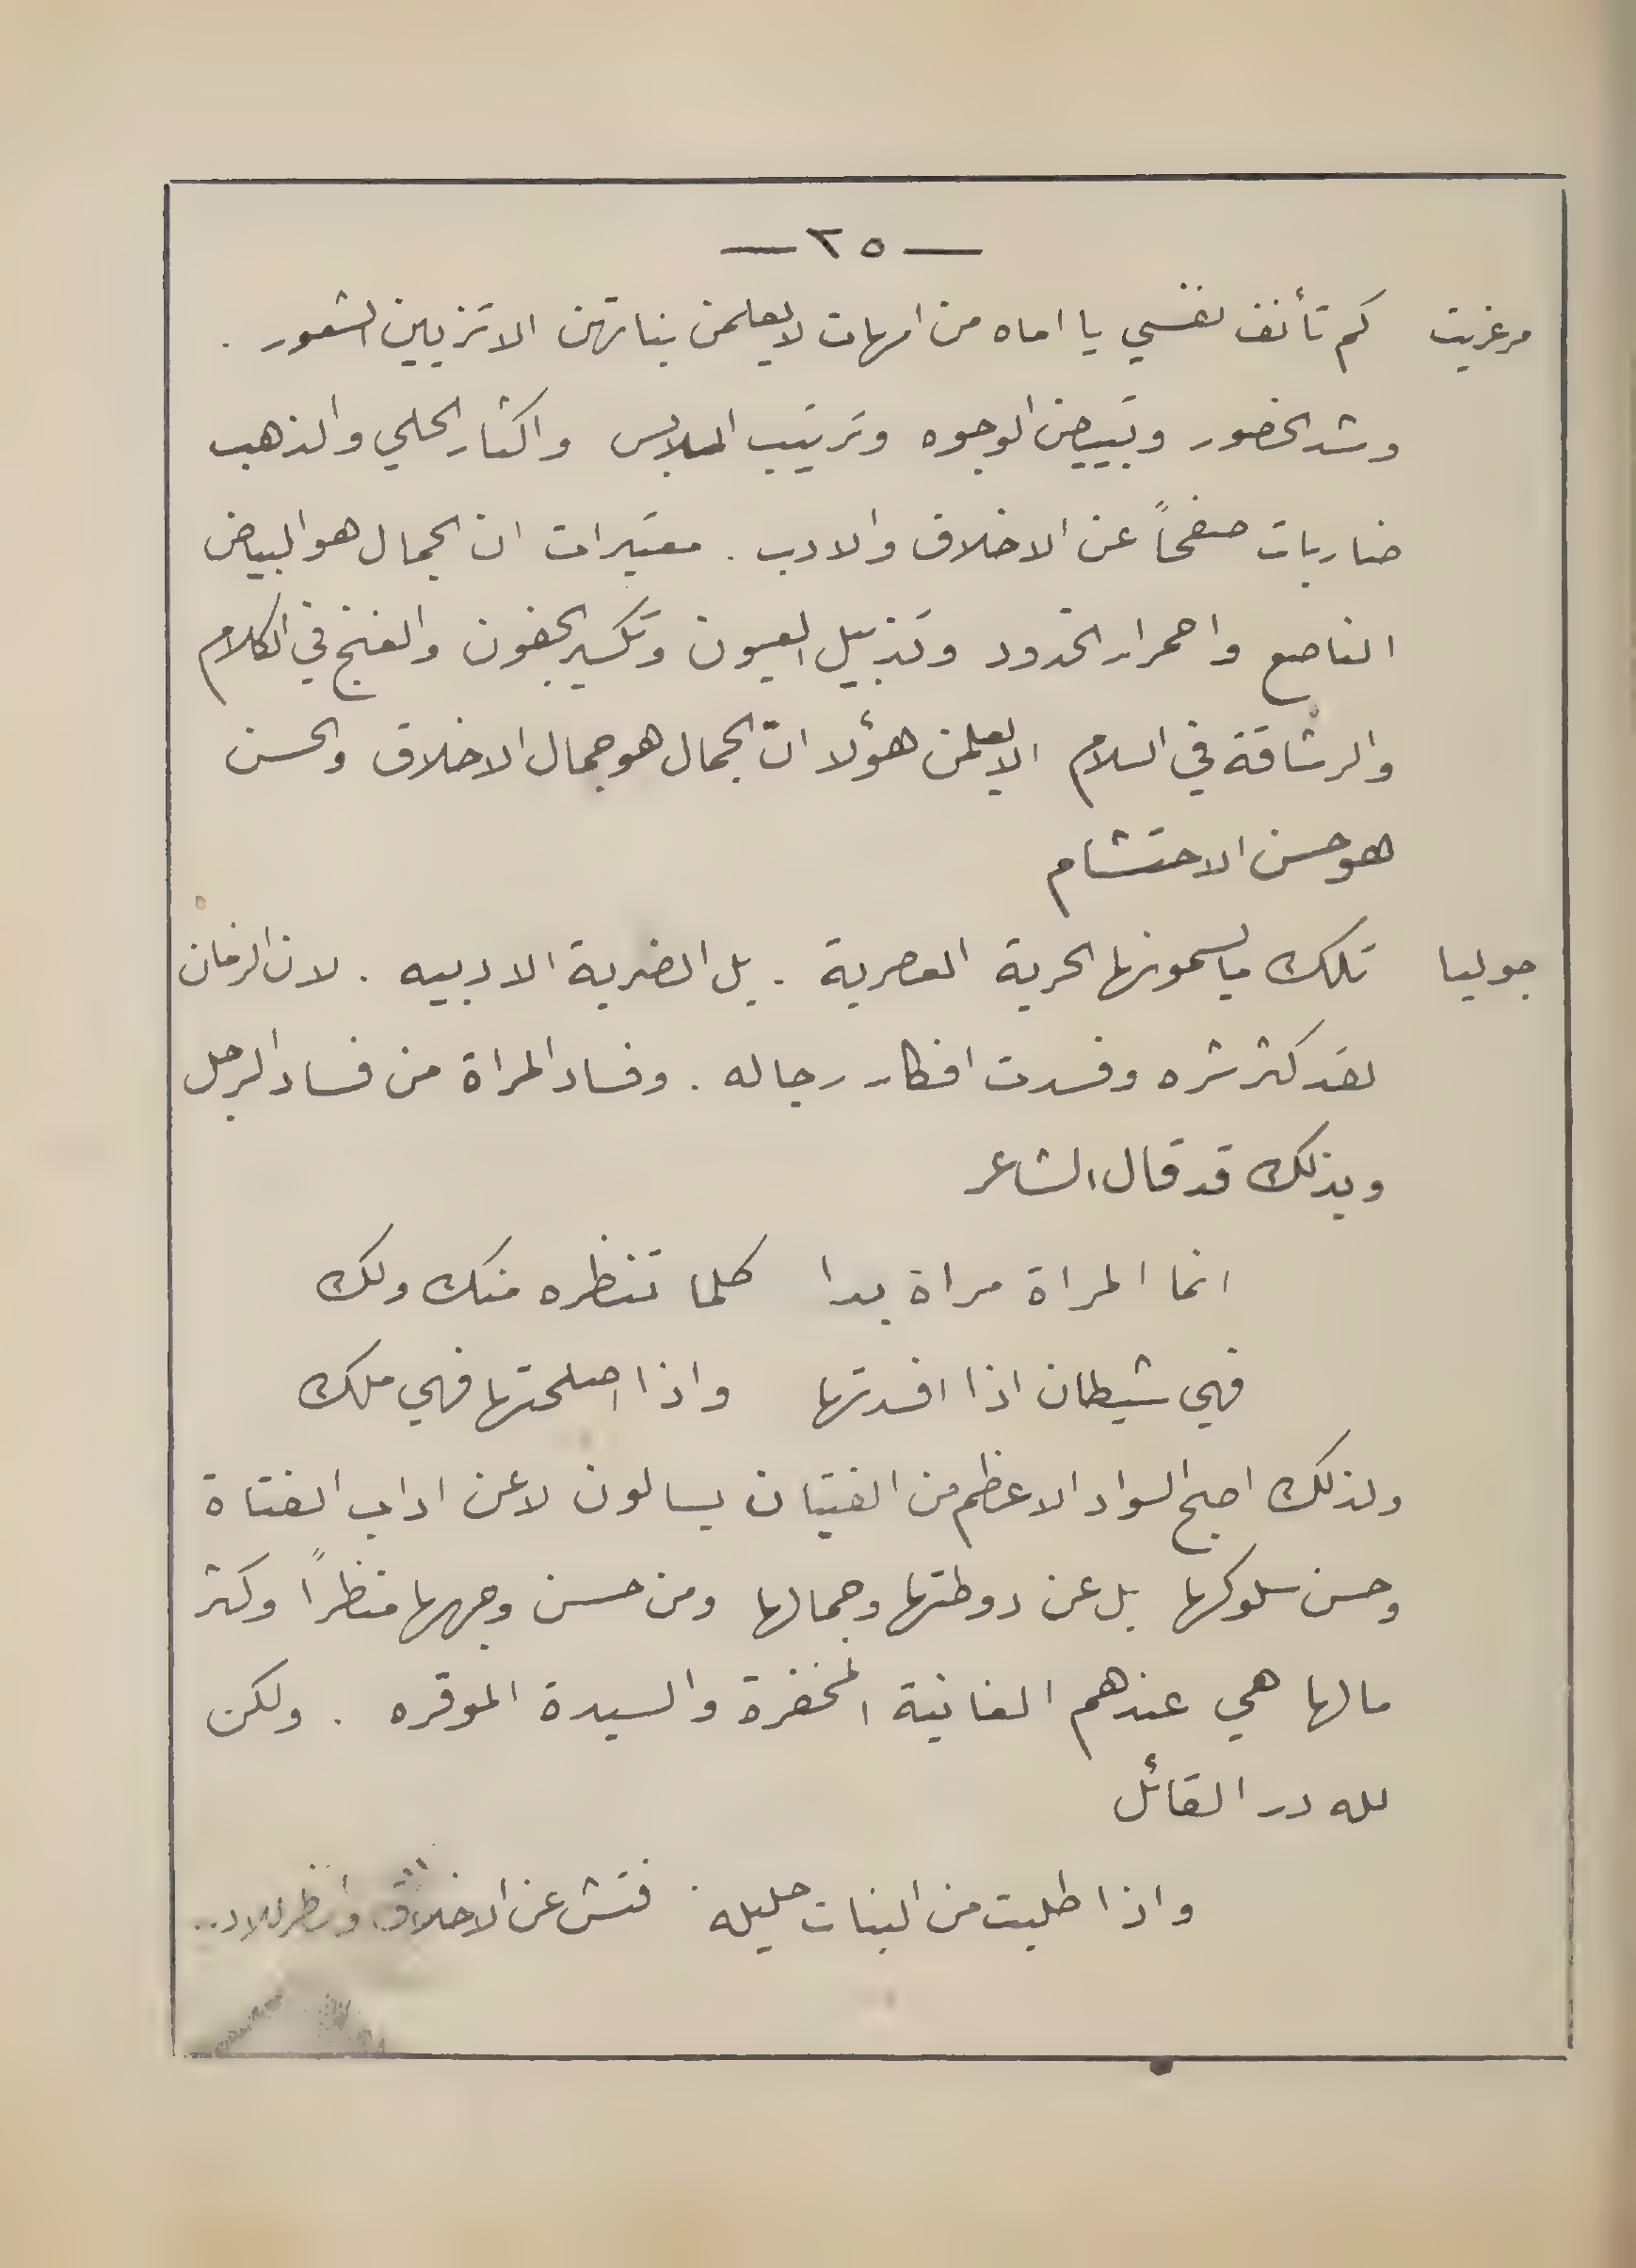 — ٢٥ —
مرغريت كم تأنف نفسي يا اماه من امهات لا يعلمن بناتهن الا تزيين الشعور .
وشد الخصور وتبييض الوجوه وترتيب الملابس واكثار الحلي والذهب
ضاربات صفحاً عن الاخلاق والادب . معتبرات ان الجمال هو البياض
الناصع واحمرار الخدود وتذبيل العيون وتكسير الجفون والغنج في الكلام
والرشاقة في السلام الا يعلمن هؤلا انّ الجمال هو جمال الاخلاق والحسن
هو حسن الاحتشام
جوليا تلك ما يسمونها الحرية العصرية . بل الضربة الادبيه . لان الزمان
لقد كثر شره وفسدت افكار رجاله . وفساد المراة من فساد الرجل
وبذلك قد قال الشاعر
انما المراة مراة بدا كلما تنظره منك ولك
فهي شيطان اذا افسدتها واذا اصلحتها فهي ملك
ولذلك اصبح السواد الاعظم من الفتيان يسالون لا عن اداب الفتاة
وحسن سلوكها بل عن دوطتها وجمالها ومن حسن وجهها منظراً وكثر
مالها هي عندهم الغانية المخفرة والسيدة الموقره . ولكن
لله در القائل
واذا طلبت من البنات حليله فتش عن الاخلاق وانظر